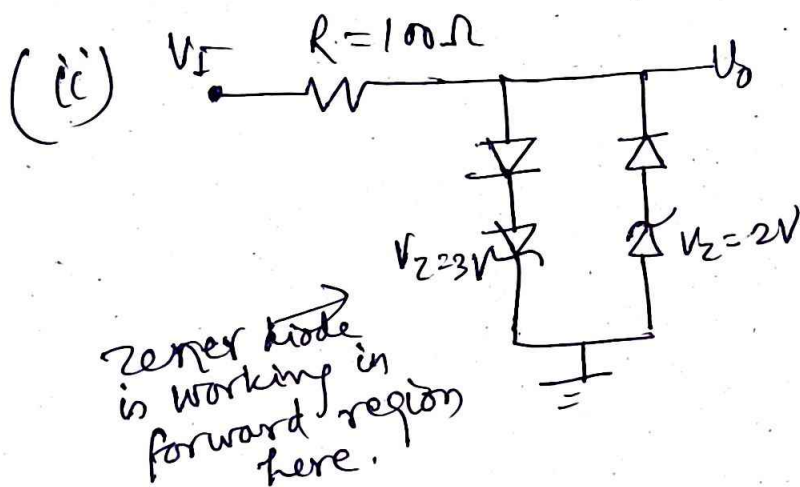 (ii)
V_I
R = 100Ω
V_o
V_Z=3V
V_Z=2V
zener diode
is working in
forward region
here.